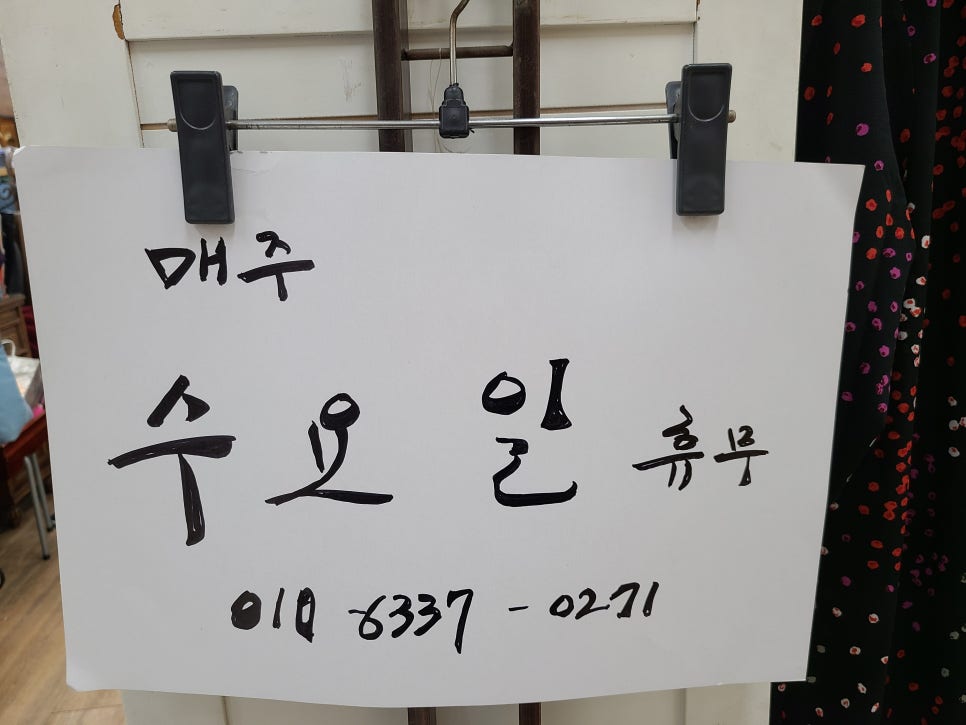 매주
수요일 휴무
010-6337-0271